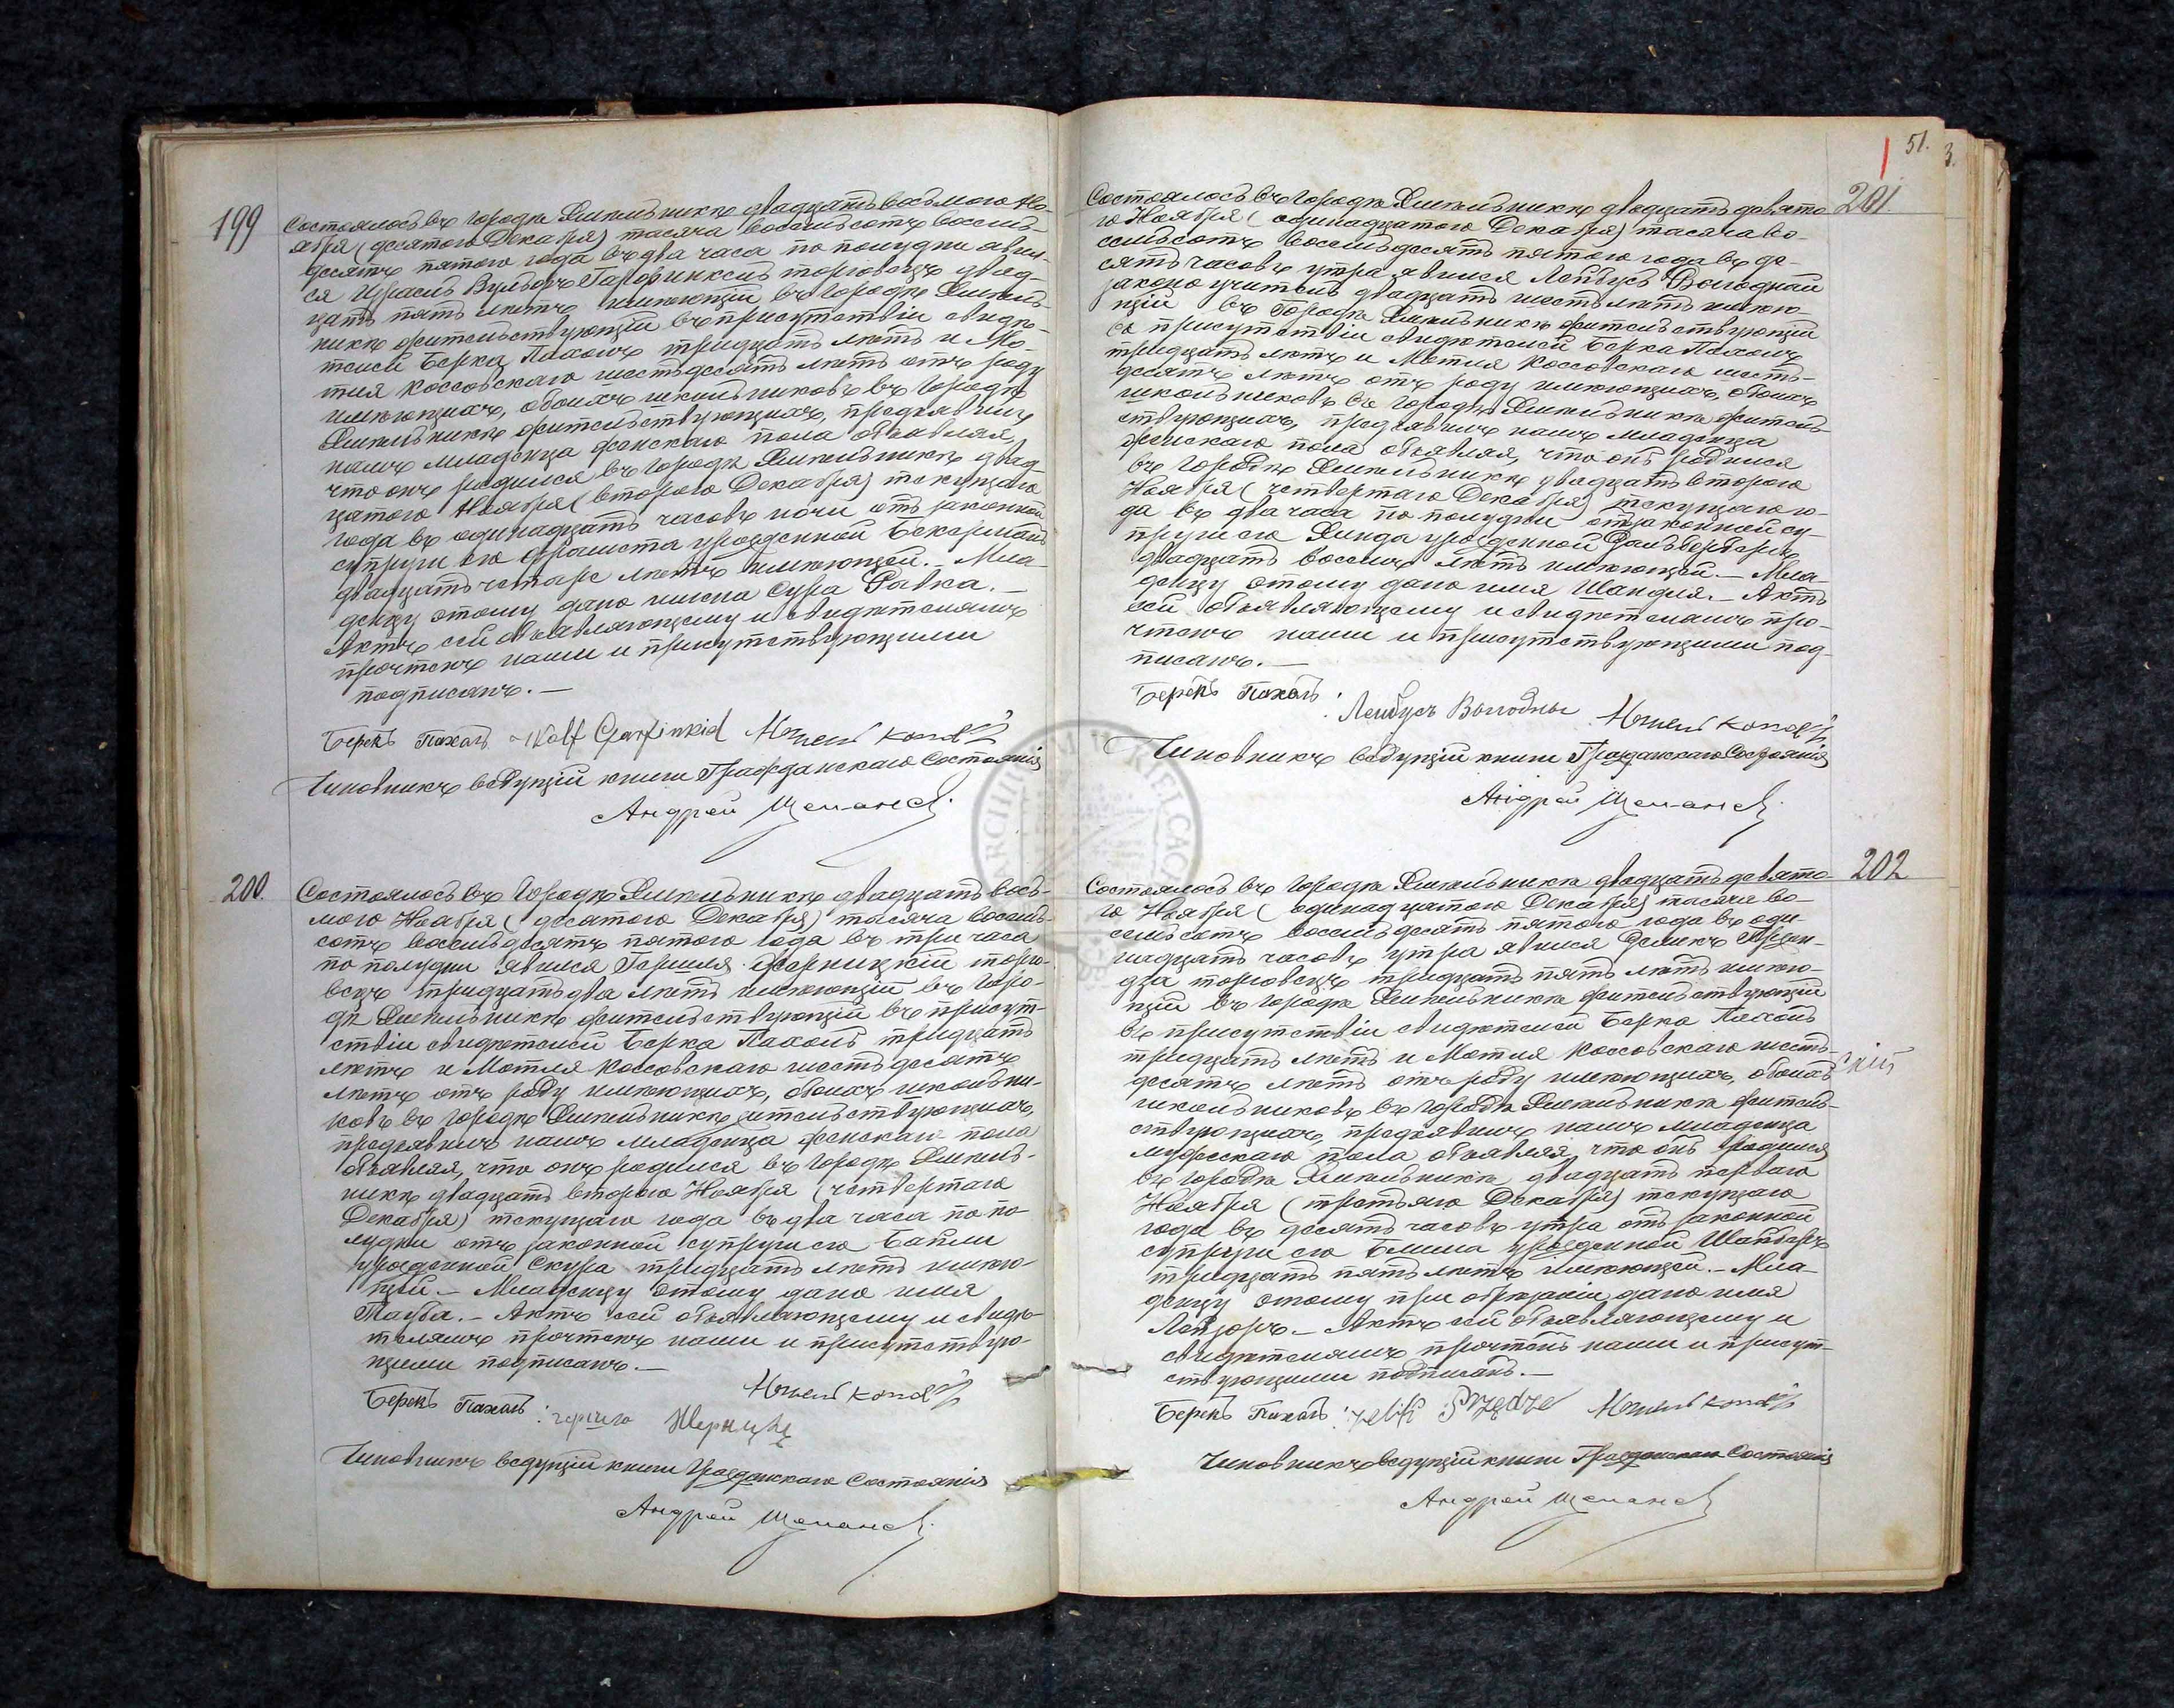 199
Состоялось въ городѣ Хмѣльникѣ двадцать восьмого Но-
ября (десятого Декабря) тысяча восемьсотъ восемь-
десятъ пятого года въ два часа по полудни явил-
ся Израель Вульфъ Гарфинкель торговецъ двад-
цать пять лѣтъ имѣющій въ городѣ Хмѣль-
никѣ жительствующій въ присутствіи свидѣ-
телей Берка Пахолъ тридцать лѣтъ и Мо-
тля Коссовскаго шестьдесятъ лѣтъ отъ роду
имѣющихъ, обоихъ школьниковъ въ городѣ
Хмѣльникѣ жительствующихъ, предъявилъ
намъ младенца женскаго пола объявляя,
что онъ родился въ городѣ Хмѣльникѣ двад-
цатого Ноября (второго Декабря) текущаго
года въ одинадцать часовъ ночи отъ законной
супруги его урожденной
двадцать четыре лѣтъ имѣющей. Мла-
денцу этому дано имена Сура Ривка.-
Актъ сей объявляющему и свидѣтелямъ
прочтенъ нами и присутствующими
подписанъ.-
Берекъ Пахолъ Wolf Garfinkiel
Чиновникъ ведущій книги Гражданскаго Состоянія
Андрей
200.
Состоялось въ городѣ Хмѣльникѣ двадцать вось-
мого Ноября (десятого Декабря) тысяча восемь-
сотъ восемьдесятъ пятого года въ три часа
по полудни явился Гершля Жерницкій торго-
вецъ тридцать два лѣтъ имѣющій въ горо-
дѣ Хмѣльникѣ жительствующій въ присут-
ствіи свидѣтелей Берка Пахолъ тридцать
лѣтъ и Мотля Коссовскаго шестьдесятъ
лѣтъ отъ роду имѣющихъ, обоихъ школьни-
ковъ въ городѣ Хмѣльникѣ жительствующихъ,
предъявилъ намъ младенца женскаго пола
объявляя, что онъ родился въ городѣ Хмѣль-
никѣ двадцать второго Ноября (четвертаго
Декабря) текущаго года въ два часа по по-
лудни отъ законной супруги его Байли
урожденной Скура тридцать лѣтъ имѣю-
щей.- Младенцу этому дано имя
Тауба.- Актъ сей объявляющему и свидѣ-
телямъ прочтенъ нами и присутствую-
щими подписанъ.-
Берекъ Пахолъ
Чиновникъ ведущій книги Гражданскаго Состоянія
Андрей
51.
201.
Состоялось въ городѣ Хмѣльникѣ двадцать девято-
го Ноября (одинадцатого Декабря) тысяча во-
семьсотъ восемьдесятъ пятого года въ де-
сять часовъ утра явился Лейбусь
законоучитель двадцать шесть лѣтъ имѣю-
щій въ городѣ Хмѣльникѣ жительствующій
въ присутствіи свидѣтелей Берка Пахолъ
тридцать лѣтъ и Мотля Коссовскаго шесть-
десятъ лѣтъ отъ роду имѣющихъ, обоихъ
школьниковъ въ городѣ Хмѣльникѣ житель-
ствующихъ, предъявилъ намъ младенца
женскаго пола объявляя, что онъ родился
въ городѣ Хмѣльникѣ двадцать второго
Ноября (четвертаго Декабря) текущаго го-
да въ два часа по полудни отъ законной су-
пруги его Хинда урожденной
двадцать восемь лѣтъ имѣющей.- Мла-
денцу этому дано имя Шандля.- Актъ
сей объявляющему и свидѣтелямъ про-
чтенъ нами и присутствующими под-
писанъ.-
Берекъ Пахолъ Лейбусь
Чиновникъ ведущій книги Гражданскаго Состоянія
Андрей
202
Состоялось въ городѣ Хмѣльникѣ двадцать девято-
го Ноября (одинадцатого Декабря) тысяча во-
семьсотъ восемьдесятъ пятого года въ оди-
надцать часовъ утра явился Зеликъ Пржен-
дза торговецъ тридцать пять лѣтъ имѣю-
щій въ городѣ Хмѣльникѣ жительствующій
въ присутствіи свидѣтелей Берка Пахолъ
тридцать лѣтъ и Мотля Коссовскаго шесть-
десятъ лѣтъ отъ роду имѣющихъ, обоихъ
школьниковъ въ городѣ Хмѣльникѣ житель-
ствующихъ, предъявилъ намъ младенца
мужескаго пола объявляя, что онъ родился
въ городѣ Хмѣльникѣ двадцать перваго
Ноября (третьяго Декабря) текущаго
года въ десять часовъ утра отъ законной
супруги его урожденной
тридцать пять лѣтъ имѣющей.- Мла-
денцу этому при обрѣзаніи дано имя
Лейзоръ.- Актъ сей объявляющему и
свидѣтелямъ прочтенъ нами и присут-
ствующими подписанъ.-
Берекъ Пахолъ Zelik Przędza
Чиновникъ ведущій книги Гражданскаго Состоянія
Андрей